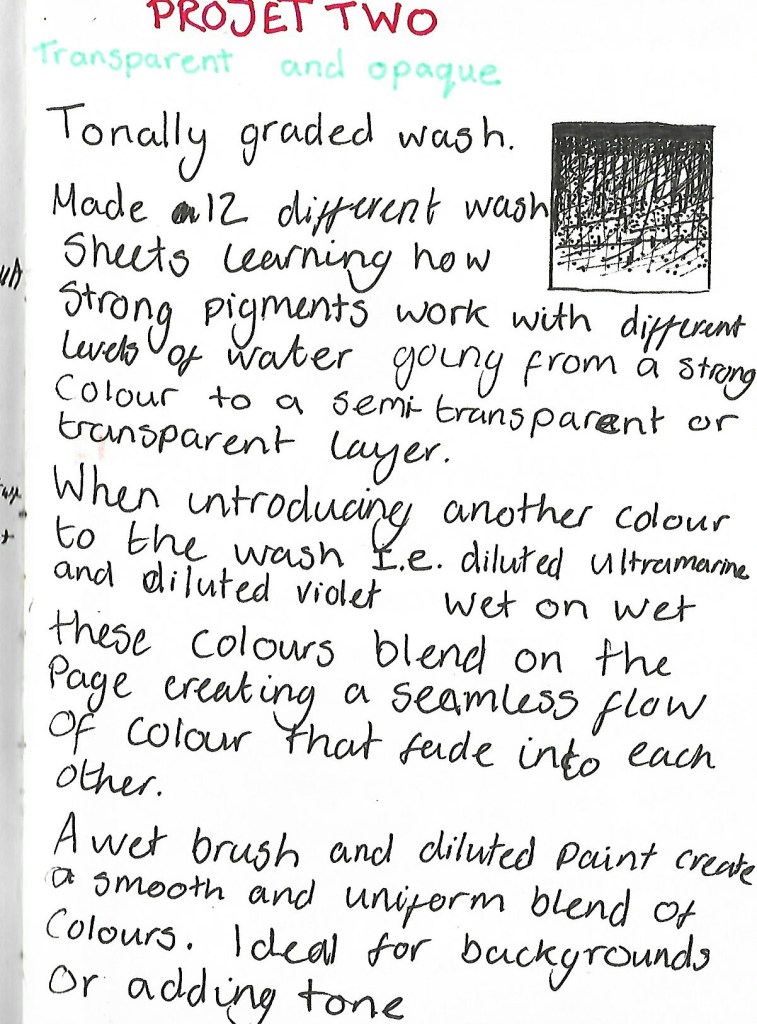 PROJET TWO
Transparent and opaque
Tonally graded wash.
Made 12 different wash
Sheets learning how
strong pigments work with different
levels of water going from a strong
colour to a semi transparent or
transparent layer.
When introducing another colour
to the wash I.e. diluted ultramarine
and diluted violet wet on wet
these colours blend on the
Page creating a seamless flow
of colour that fade into each
other.
A wet brush and diluted paint create
a smooth and uniform blend of
colours. Ideal for backgrounds
or adding tone